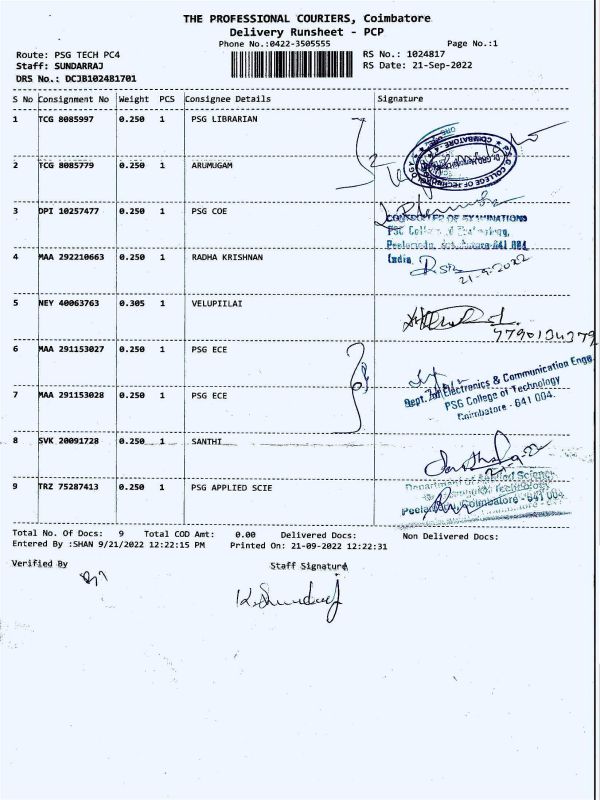 THE PROFESSIONAL COURIERS, Coimbatore
Delivery Runsheet - PCP
Phone No.:0422-3505555
Page No.:1
Route: PSG TECH PC4
RS No.: 1024817
Staff: SUNDARRAJ
RS Date: 21-Sep-2022
DRS No.: DCJB102481701
S No Consignment No Weight PCS Consignee Details Signature
1 TCG 8085997 0.250 1 PSG LIBRARIAN
2 TCG 8085779 0.250 1 ARUMUGAM
3 DPI 10257477 0.250 1 PSG COE
CONTROLLER OF EXAMINATIONS
PSG College of Technology,
Peelamedu, Coimbatore-641 004,
India
4 MAA 292210663 0.250 1 RADHA KRISHNAN
21-9-2022
5 NEY 40063763 0.305 1 VELUPIILAI
7790134379
6 MAA 291153027 0.250 1 PSG ECE
Dept. of Electronics & Communication Engg.
PSG College of Technology
Coimbatore - 641 004.
7 MAA 291153028 0.250 1 PSG ECE
8 SVK 20091728 0.250 1 SANTHI
9 TRZ 75287413 0.250 1 PSG APPLIED SCIE
Department of Applied Science
Peelamedu, Coimbatore - 641 004
Total No. Of Docs: 9 Total COD Amt: 0.00 Delivered Docs: Non Delivered Docs:
Entered By :SHAN 9/21/2022 12:22:15 PM Printed On: 21-09-2022 12:22:31
Verified By
Staff Signature
K. Sundarraj